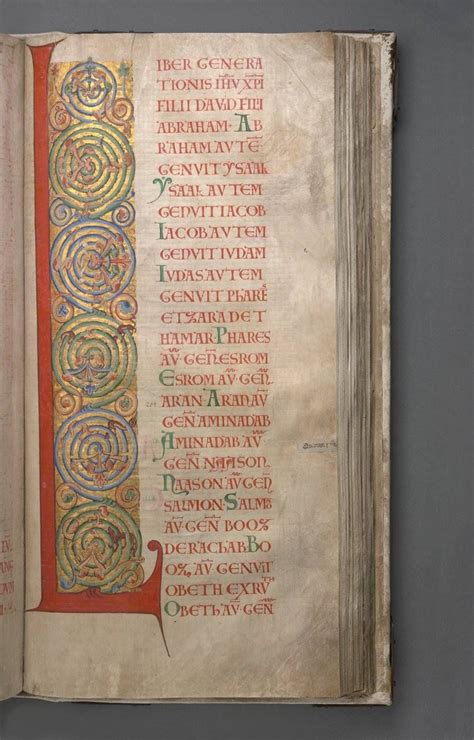 L
IBER GENERA
TIONIS IHV XPI
FILII DAVID FILII
ABRAHAM· AB
RAHAM AVTĒ
GENVIT YSAAK
YSAAK AVTEM
GENVIT IACOB
IACOB AVTEM
GENVIT IVDAM
IVDAS AVTEM
GENVIT PHARĒ
ET ZARA DE T
HAMAR· PHARES
AV̄ GEN̄ ESROM
ESROM AV̄ GEN̄
ARAN· ARAN AV̄
GEN̄ AMINADAB
AMINADAB AV̄
GEN̄ NAASON·
NAASON AV̄ GEN̄
SALMON· SALM̄
AV̄ GEN̄ BOOZ
DE RACHAB· BO
OZ AV̄ GENVIT
OBETH EX RVTH
OBETH AV̄ GEN̄